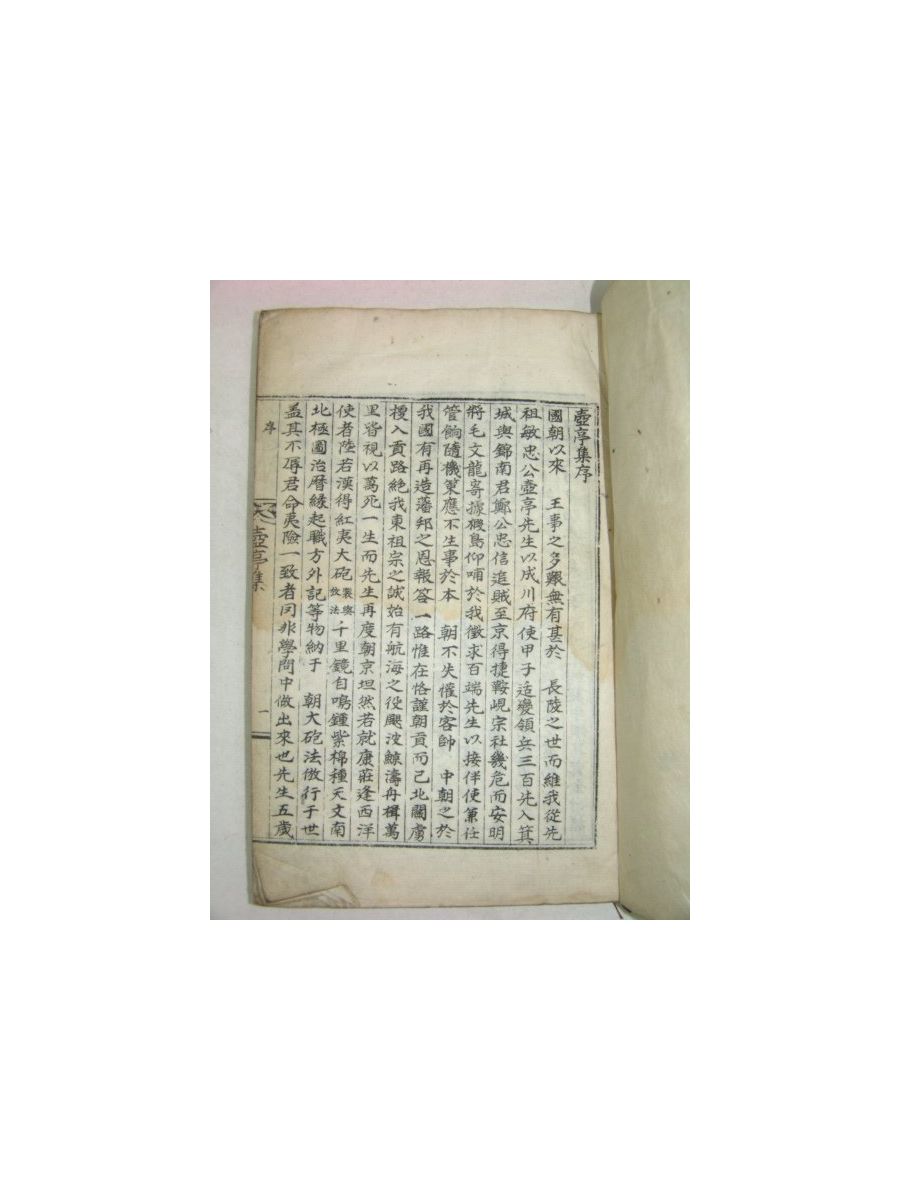 壺亭集序
國朝以來　王事之多艱無有甚於　長陵之世而維我從先
祖敏忠公壺亭先生以成川府使甲子适變領兵三百先入箕
城與錦南君鄭公忠信追賊至京得捷鞍峴宗社幾危而安明
將毛文龍寄據椵島仰哺於我徵求百端先生以接伴使兼任
管餉隨機策應不生事於本　朝不失懽於客帥　中朝之於
我國有再造藩邦之恩報答一路惟在恪謹朝貢而已北關虜
梗入貢路絶我東祖宗之誠始有航海之役颶波鯨濤舟楫萬
里皆視以萬死一生而先生再度朝京坦然若就康莊逢西洋
使者陸若漢得紅夷大砲製與放法千里鏡自鳴鍾紫棉種天文南
北極圖治曆緣起職方外記等物納于　朝大砲法倣行于世
盖其不辱君命夷險一致者罔非學問中做出來也先生五歲
序
壺亭集
一